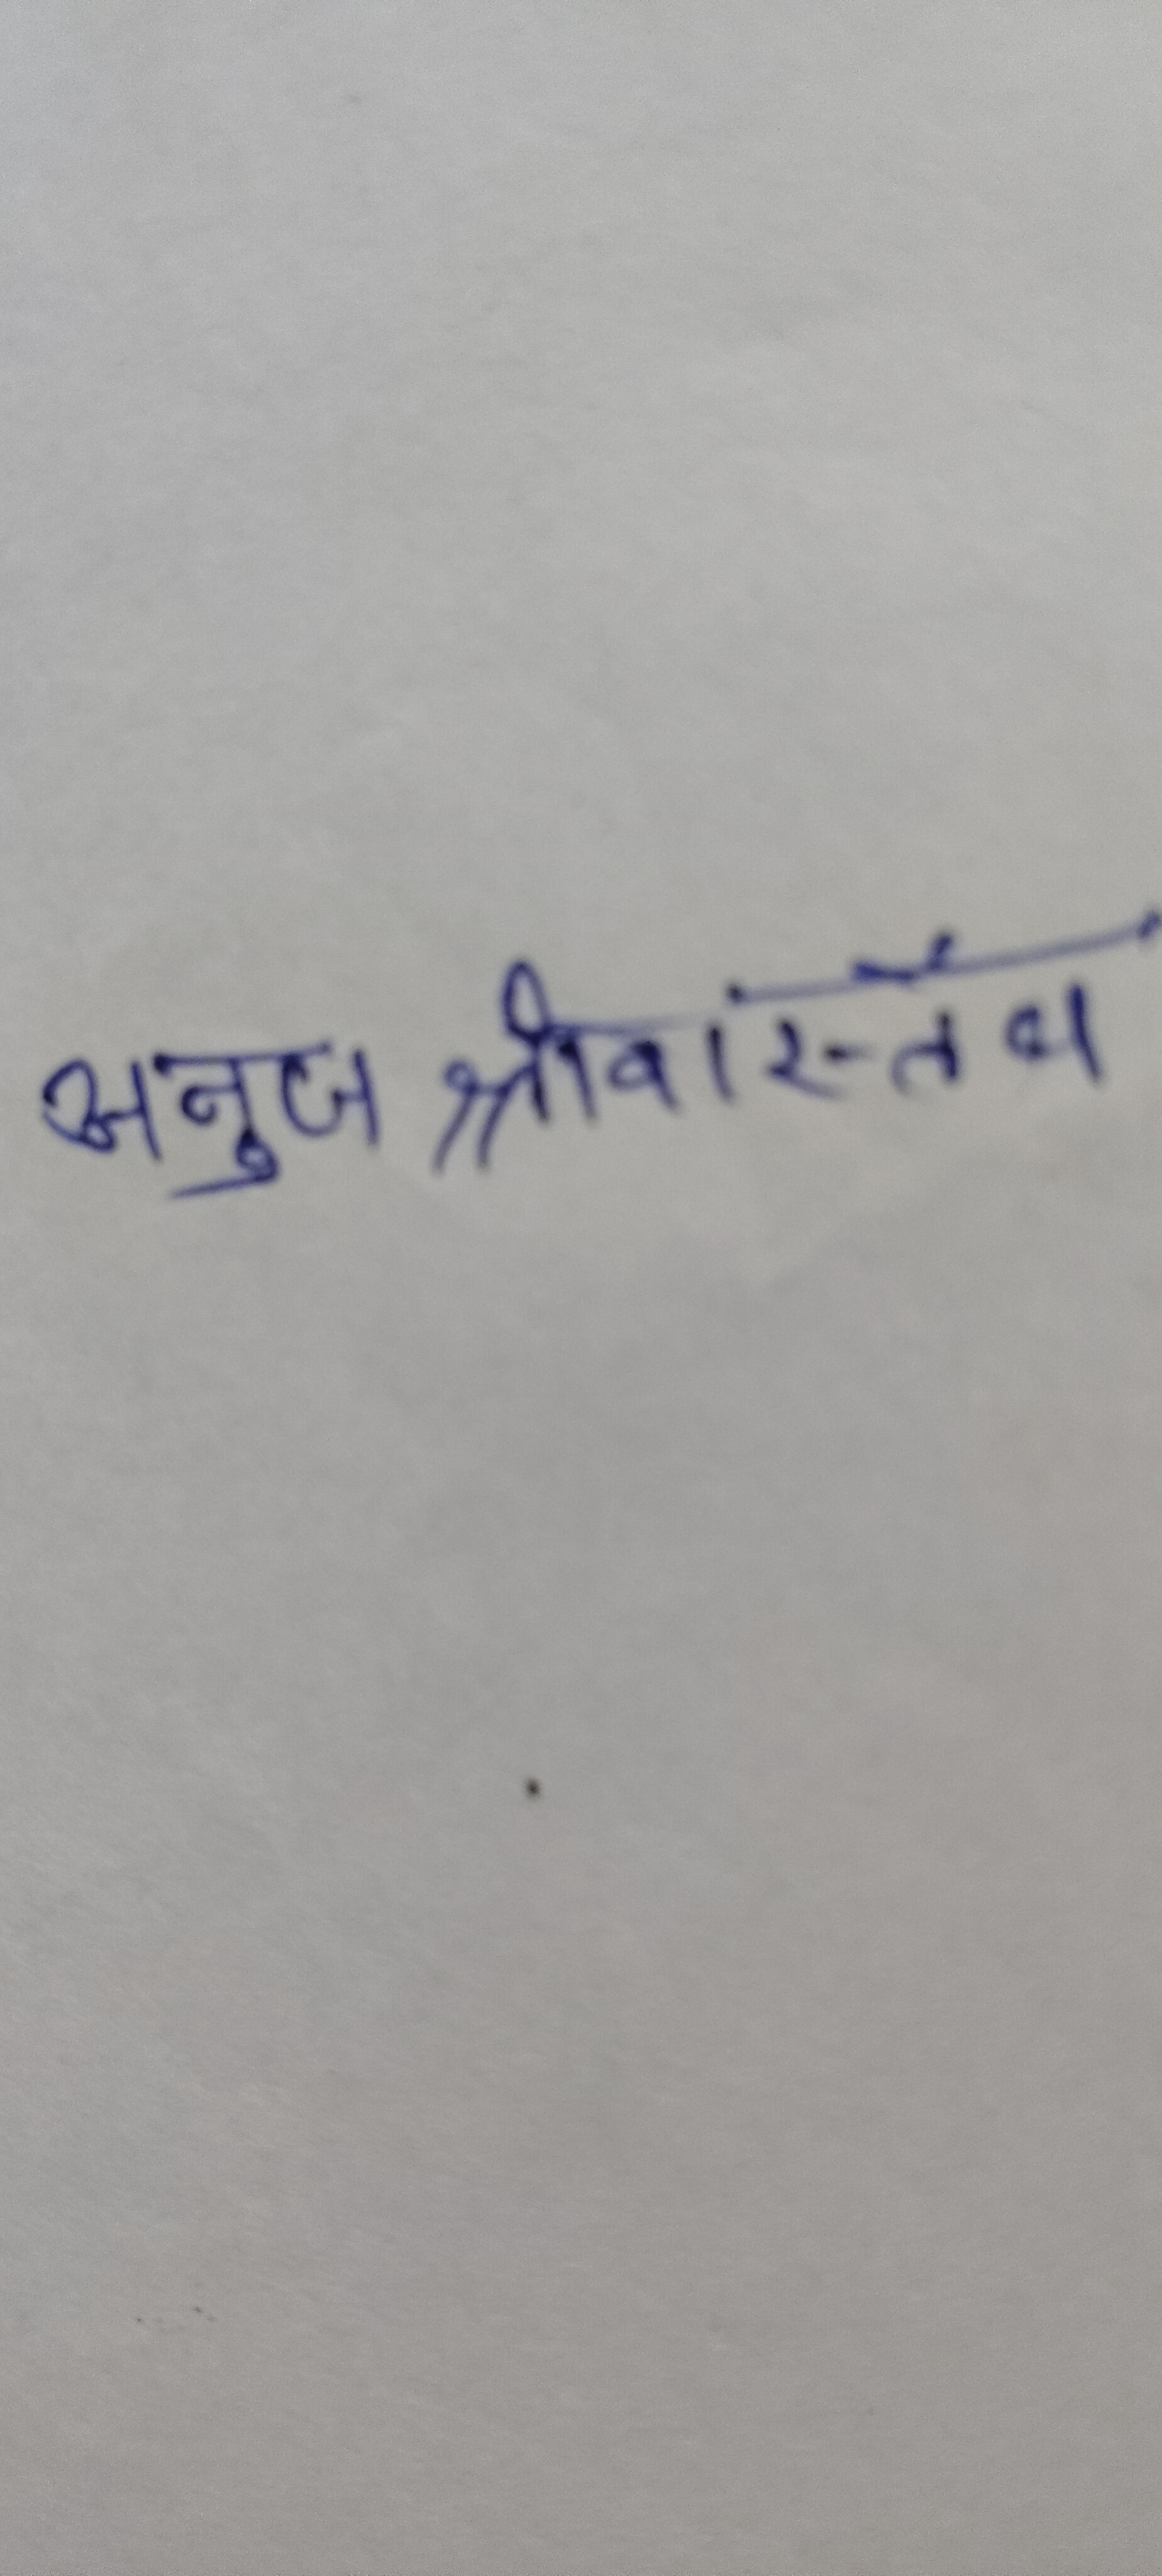 अनुज श्रीवास्तव